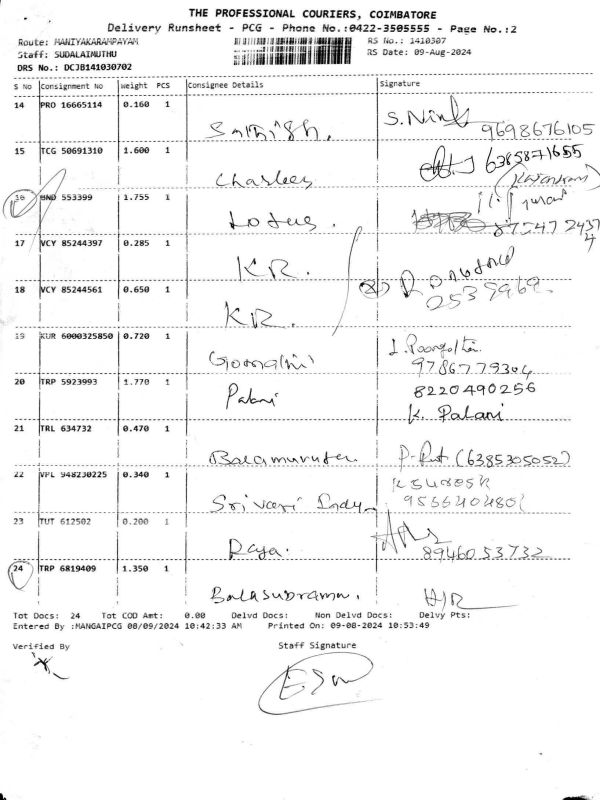 THE PROFESSIONAL COURIERS, COIMBATORE
Delivery Runsheet - PCG - Phone No.:0422-3505555 - Page No.:2
Route: MANIYAKARAMPAYAM RS No.: 1410307
Staff: SUDALAIMUTHU RS Date: 09-Aug-2024
DRS No.: DCJB141030702
S No Consignment No Weight PCS Consignee Details Signature
14 PRO 16665114 0.160 1
Sathish. S. 9698676105
15 TCG 50691310 1.600 1 6385871655
Charles
16 553399 1.755 1
Lotus.
17 VCY 85244397 0.285 1
KR.
18 VCY 85244561 0.650 1
KR.
19 KUR 6000325850 0.720 1
Gomathi 9786779304
20 TRP 5923993 1.770 1 8220490256
Palani K. Palani
21 TRL 634732 0.470 1
Balamurugan (6385305052)
22 VPL 948230225 0.340 1 KSURESH
Srivari
23 TUT 612502 0.200 1
Raja. 8946053732
24 TRP 6819409 1.350 1
Balasubrama. H/R
Tot Docs: 24 Tot COD Amt: 0.00 Delvd Docs: Non Delvd Docs: Delvy Pts:
Entered By :MANGAIPCG 08/09/2024 10:42:33 AM Printed On: 09-08-2024 10:53:49
Verified By Staff Signature